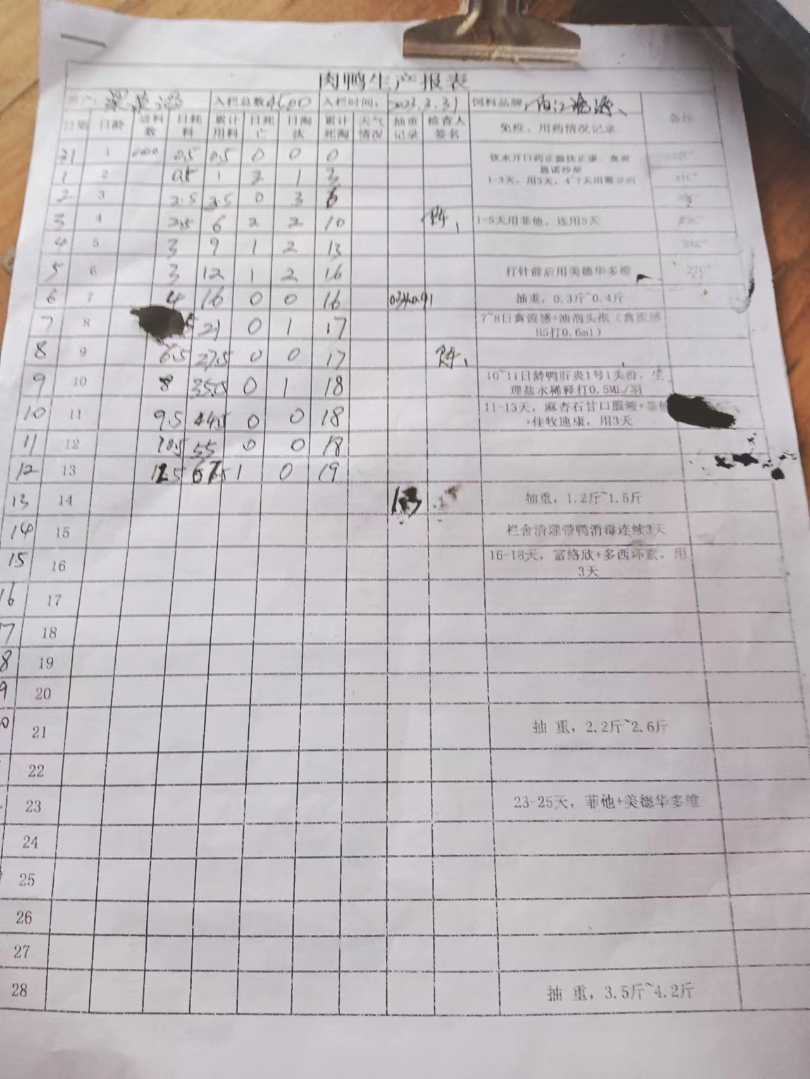 肉鸭生产报表
入栏总数 入栏时间: 2023.3.31 饲料品牌
日期 日龄 进料数 日耗料 累计用料 日死亡 日淘汰 累计死淘 天气情况 抽重记录 检查人签名 免疫、用药情况记录 备注
31 1 0.5 0.5 0 0 0
1 2 0.5 1 2 1 3
1-3天，用3天，4~7天用
2 3 2.5 3.5 0 3 6
3 4 2.5 6 2 2 10 1-5天用菲他，连用5天
4 5 3 9 1 2 13
5 6 3 12 1 2 16 打针前后用美德华多维
6 7 4 16 0 0 16 抽重，0.3斤~0.4斤
7 8 5 21 0 1 17 7~8日禽流感+油剂头孢（禽流感H5打0.6ml）
8 9 6.5 27.5 0 0 17
9 10 8 35.5 0 1 18 10~11日龄鸭肝炎1号1头份，生理盐水稀释打0.5ML/羽
10 11 9.5 44.5 0 0 18 11-13天，麻杏石甘口服液+
+佳牧迪康，用3天
11 12 10.5 55 0 0 18
12 13 12.5 67.5 1 0 19
13 14 抽重，1.2斤~1.5斤
14 15 栏舍清理带鸭消毒连续3天
15 16 16-18天，富络欣+多西环素，用3天
16 17
17 18
18 19
19 20
21 抽 重，2.2斤~2.6斤
22
23 23-25天，菲他+美德华多维
24
25
26
27
28 抽 重，3.5斤~4.2斤